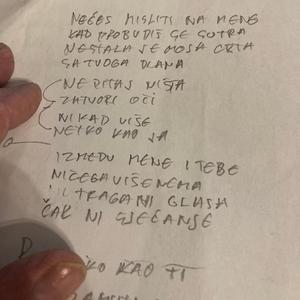 NEĆEŠ MISLITI NA MENE
KAD PROBUDIŠ SE SUTRA
NESTALA JE MOJA CRTA
SA TVOGA DLANA
NE PITAJ NIŠTA
ZATVORI OČI
NIKAD VIŠE
NETKO KAO JA
IZMEĐU MENE I TEBE
NIČEGA VIŠE NEMA
NI TRAGA NI GLASA
ČAK NI SJEĆANJE
KAO TI